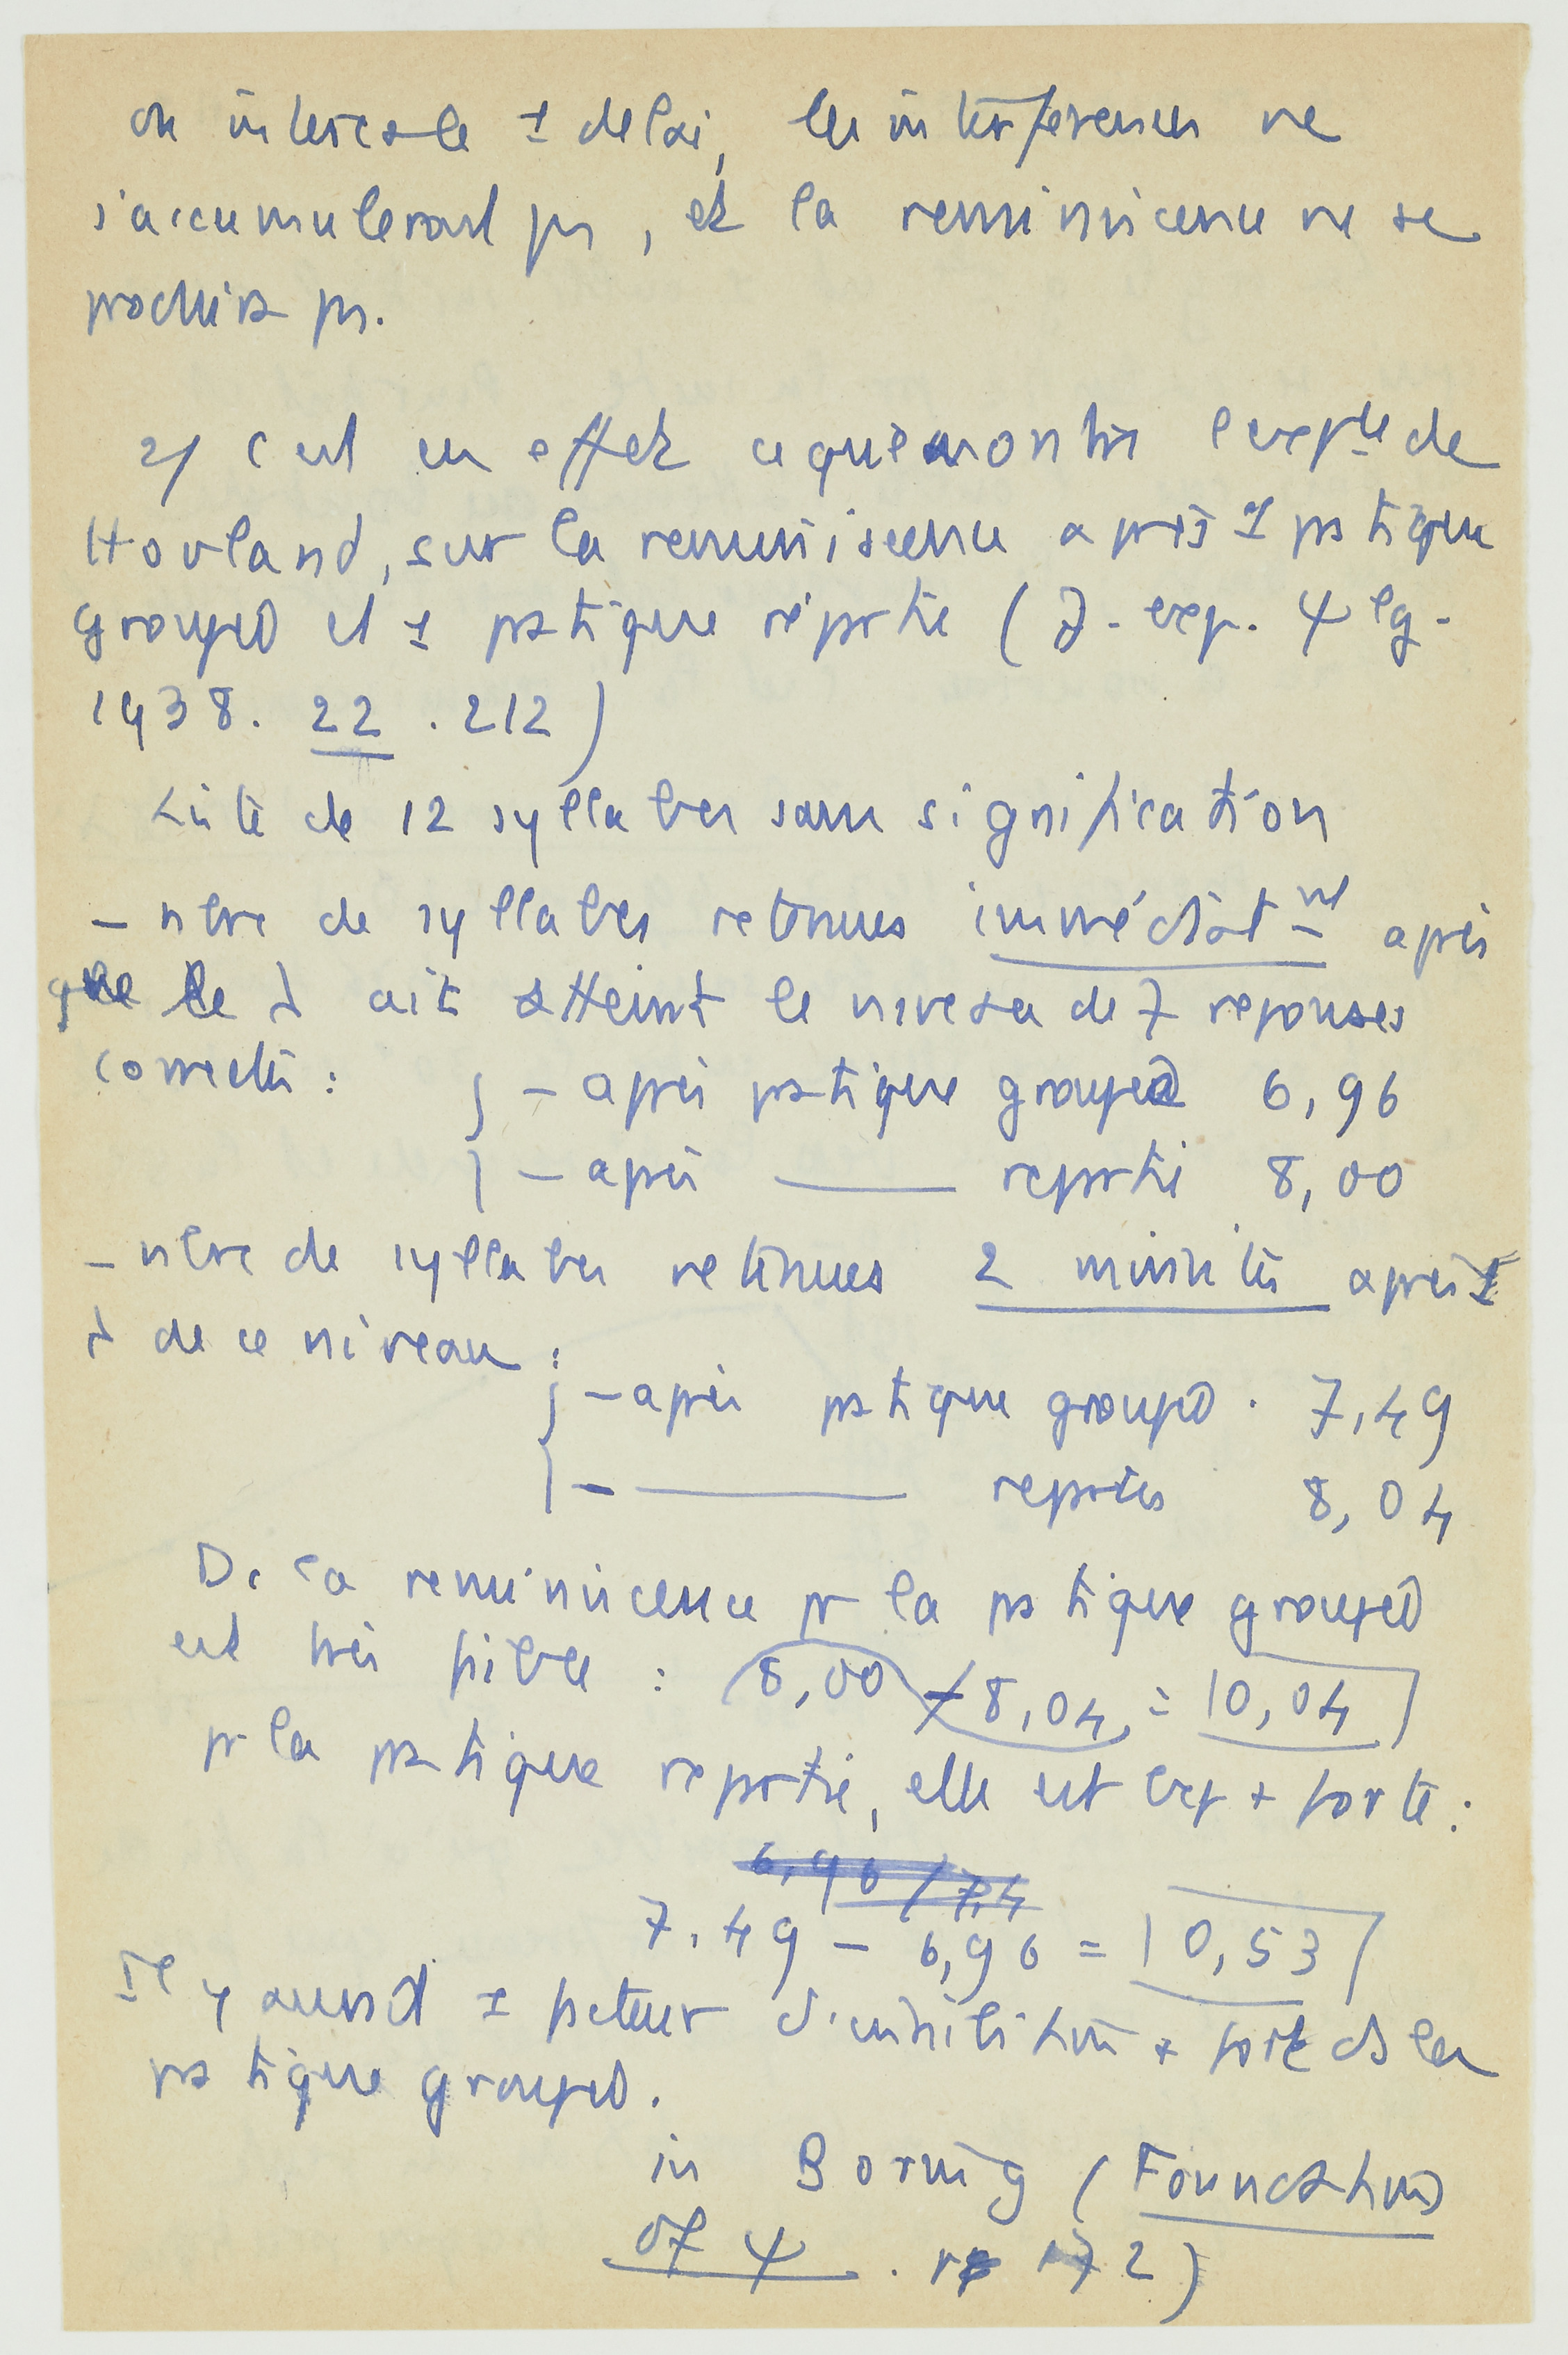 on intercale 1 délai, les interférences ne
s'accumuleront ps, et la réminiscence ne se
produira ps.
2/ C'est en effet ce que montre l'expce de
Hovland, sur la réminiscence après 1 pratique
groupée et 1 pratique répartie (J. exp. ψ lg.
1938. 22. 212)
Liste de 12 syllabes sans signification
- nbre de syllabes retenues immédiatmt après
que le s ait atteint le niveau de 7 réponses
correctes : - après pratique groupée 6,96
- après —— répartie 8,00
- nbre de syllabes retenues 2 minutes après
de ce niveau :
- après pratique groupée . 7,49
- —— répartie 8,04
Dc la réminiscence pr la pratique groupée
est très faible : 8,00 / 8,04 = 0,04
pr la pratique répartie, elle est bcp + forte :
6,96 / 7,4
7,49 - 6,96 = 0,53
Il y aurait 1 facteur d'inhibition + fort ds la
pratique groupée.
in Boring (Foundations
of ψ . 172)